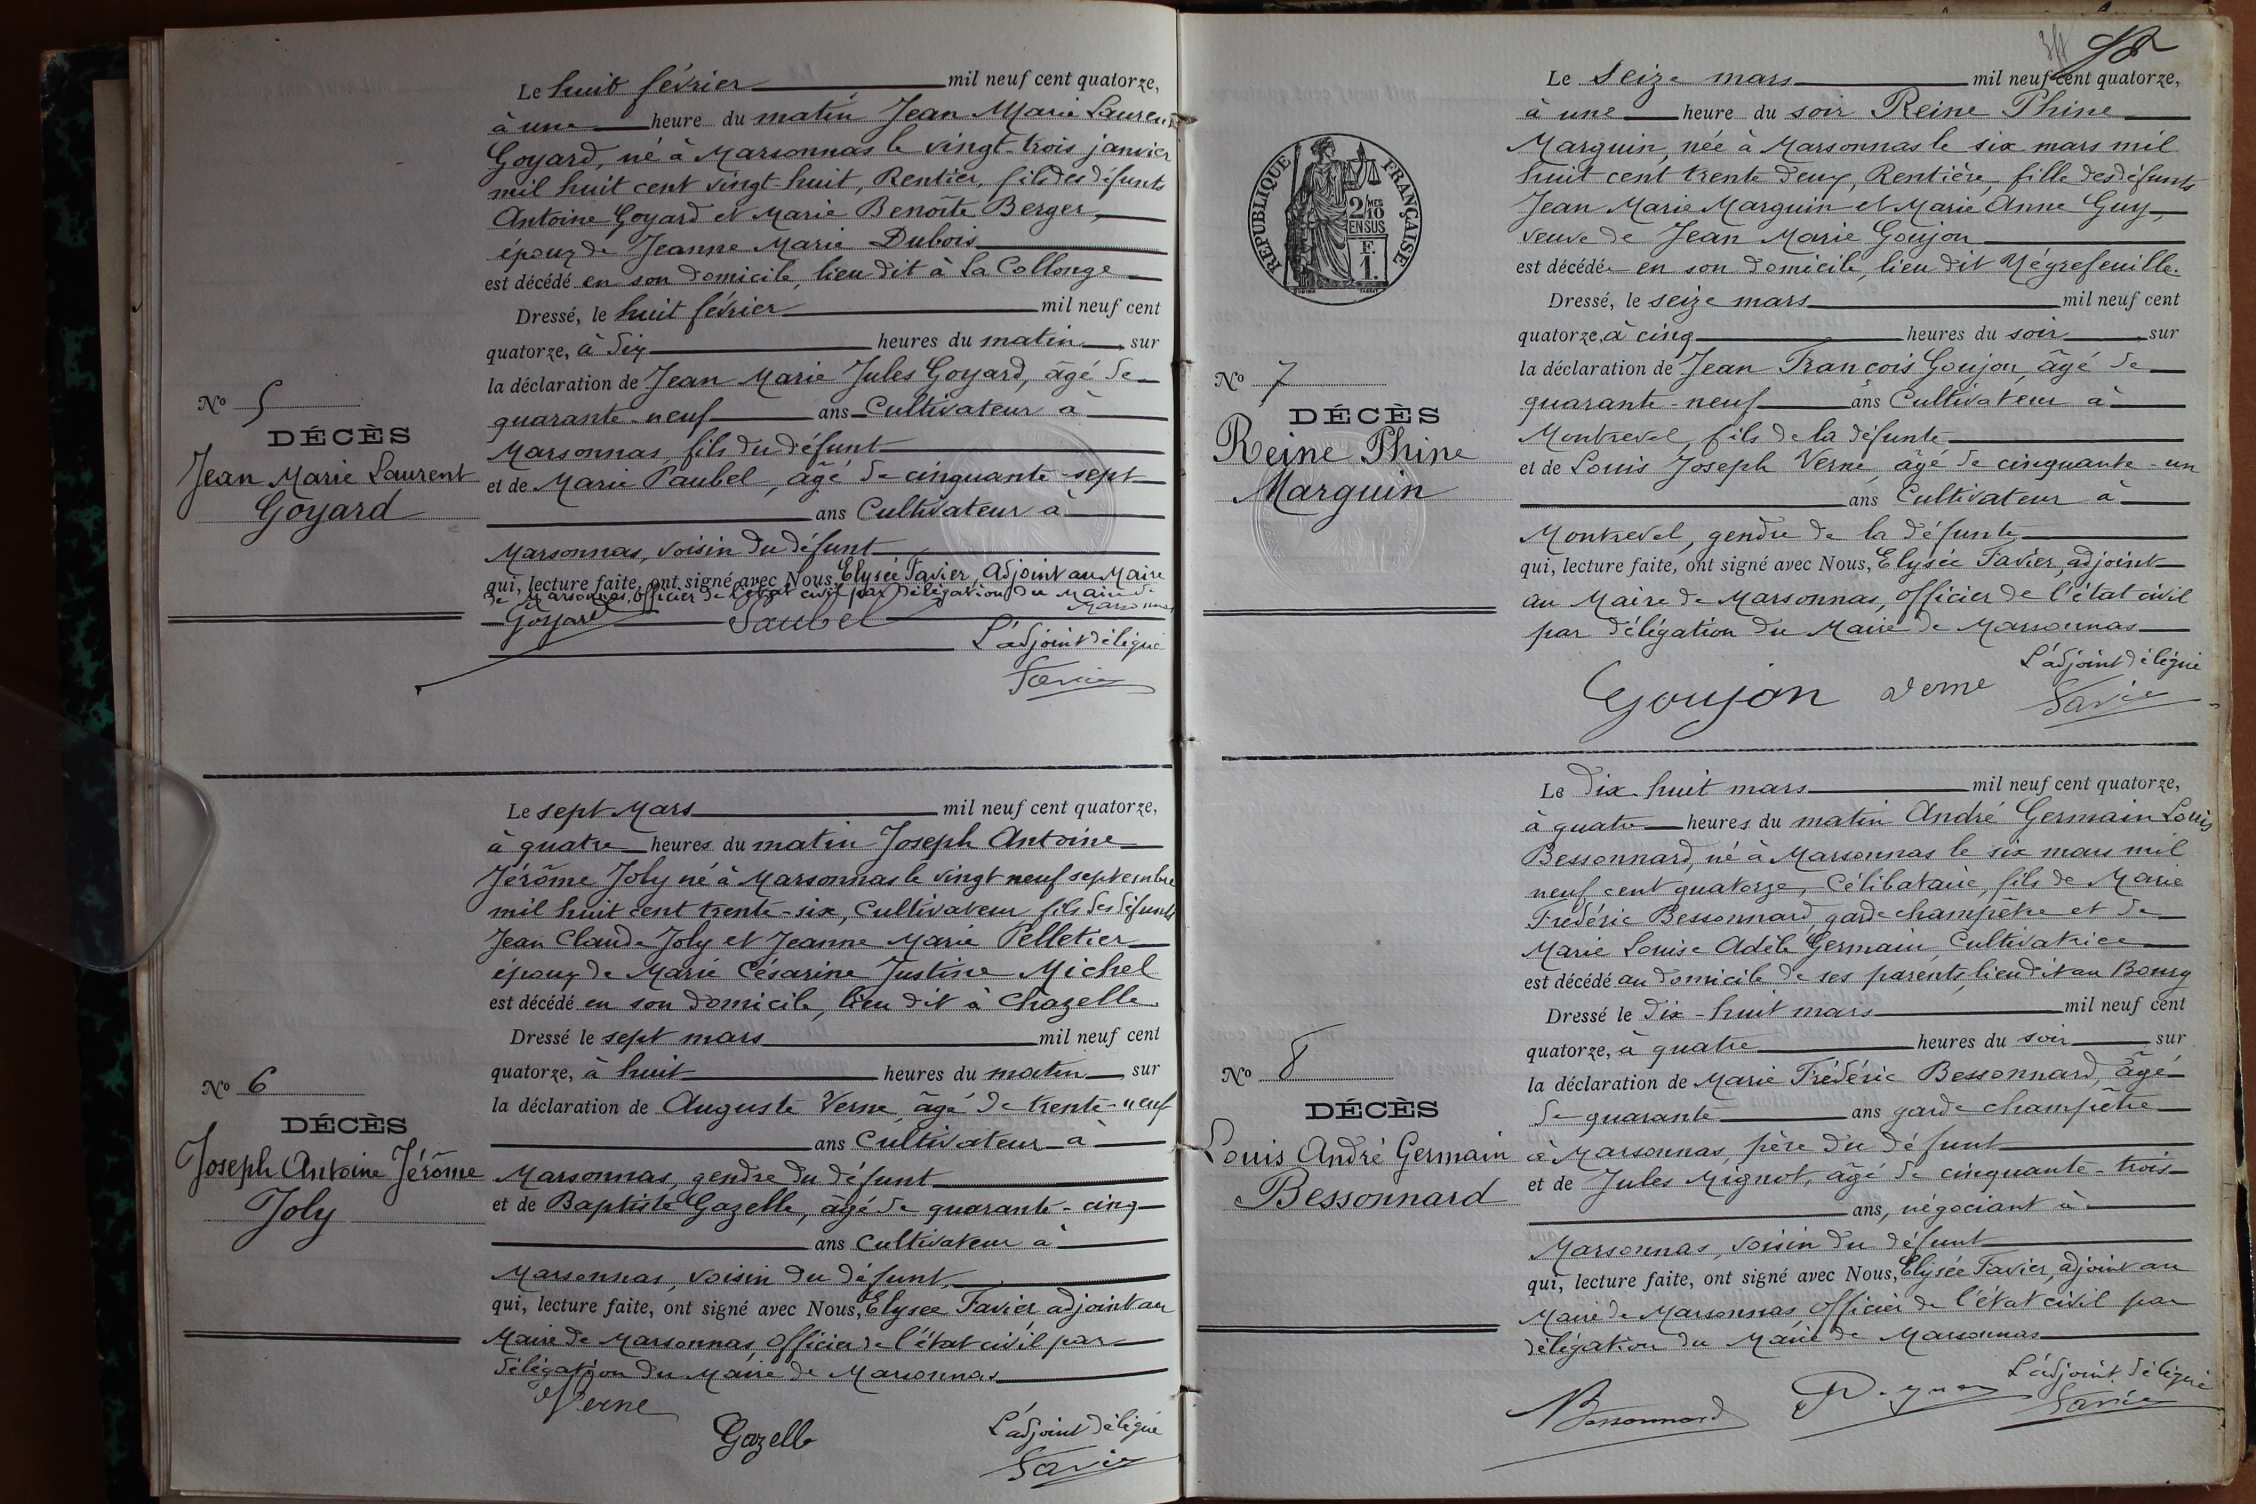 Le huit février mil neuf cent quatorze,
à une heure du matin Jean Marie Laurent
Goyard, né à Marsonnas le vingt-trois janvier
mil huit cent vingt-huit, Rentier, fils des défunts
Antoine Goyard et Marie Benoîte Berger,
époux de Jeanne Marie Dubois
est décédé en son domicile, lieu dit à la Collonge
Dressé, le huit février mil neuf cent
quatorze, à six heures du matin, sur
la déclaration de Jean Marie Jules Goyard, âgé de
quarante-neuf ans Cultivateur à
Marsonnas, fils du défunt
et de Marie Paubel, âgé de cinquante-sept
ans Cultivateur à
Marsonnas, voisin du défunt
qui, lecture faite, ont signé avec Nous, Elysée Favier, Adjoint au Maire
de Marsonnas, officier de l'état civil par délégation du Maire de
Marsonnas
Goyard Paubel
L'adjoint délégué
Favier
No 5
DÉCÈS
Jean Marie Laurent
Goyard
Le sept Mars mil neuf cent quatorze,
à quatre heures du matin Joseph Antoine
Jérôme Joly né à Marsonnas le vingt neuf septembre
mil huit cent trente-six, Cultivateur fils des défunts
Jean Claude Joly et Jeanne Marie Pelletier
époux de Marie Césarine Justine Michel
est décédé en son domicile, lieu dit à Chazelle
Dressé le sept mars mil neuf cent
quatorze, à huit heures du matin, sur
la déclaration de Auguste Verne âgé de trente-neuf
ans Cultivateur à
Marsonnas, gendre du défunt
et de Baptiste Gazelle, âgé de quarante-cinq
ans Cultivateur à
Marsonnas, voisin du défunt,
qui, lecture faite, ont signé avec Nous, Elysée Favier adjoint au
Maire de Marsonnas Officier de l'état civil par
délégation du Maire de Marsonnas
Verne
Gazelle
L'adjoint délégué
Favier
No 6
DÉCÈS
Joseph Antoine Jérôme
Joly
Le seize mars mil neuf cent quatorze,
à une heure du soir Reine Phine
Marguin, née à Marsonnas le six mars mil
huit cent trente deux, Rentière, fille des défunts
Jean Marie Marguin et Marie Anne Guy,
veuve de Jean Marie Goujon
est décédée en son domicile, lieu dit Négrefeuille.
Dressé, le seize mars mil neuf cent
quatorze, à cinq heures du soir, sur
la déclaration de Jean François Goujon, âgé de
quarante-neuf ans Cultivateur à
Montrevel, fils de la défunte
et de Louis Joseph Verne, âgé de cinquante-un
ans Cultivateur à
Montrevel, gendre de la défunte
qui, lecture faite, ont signé avec Nous, Elysée Favier, adjoint
au Maire de Marsonnas, Officier de l'état civil
par délégation du Maire de Marsonnas
L'adjoint délégué
Goujon Verne Favier
RÉPUBLIQUE FRANÇAISE
2/10 MES
EN SUS
F.
1.
No 7
DÉCÈS
Reine Phine
Marguin
Le Dix-huit mars mil neuf cent quatorze,
à quatre heures du matin André Germain Louis
Bessonnard, né à Marsonnas le six mars mil
neuf cent quatorze, Célibataire, fils de Marie
Frédéric Bessonnard, garde champêtre et de
Marie Louise Adèle Germain, Cultivatrice
est décédé au domicile de ses parents, lieu dit au Bourg
Dressé le Dix-huit mars mil neuf cent
quatorze, à quatre heures du soir sur
la déclaration de Marie Frédéric Bessonnard, âgé
de quarante ans garde champêtre
à Marsonnas, père du défunt
et de Jules Mignot, âgé de cinquante-trois
ans, négociant à
Marsonnas, voisin du défunt
qui, lecture faite, ont signé avec Nous, Elysée Favier, adjoint au
Maire de Marsonnas Officier de l'état civil par
délégation du Maire de Marsonnas
L'adjoint délégué
Bessonnard Favier
No 8
DÉCÈS
Louis André Germain
Bessonnard